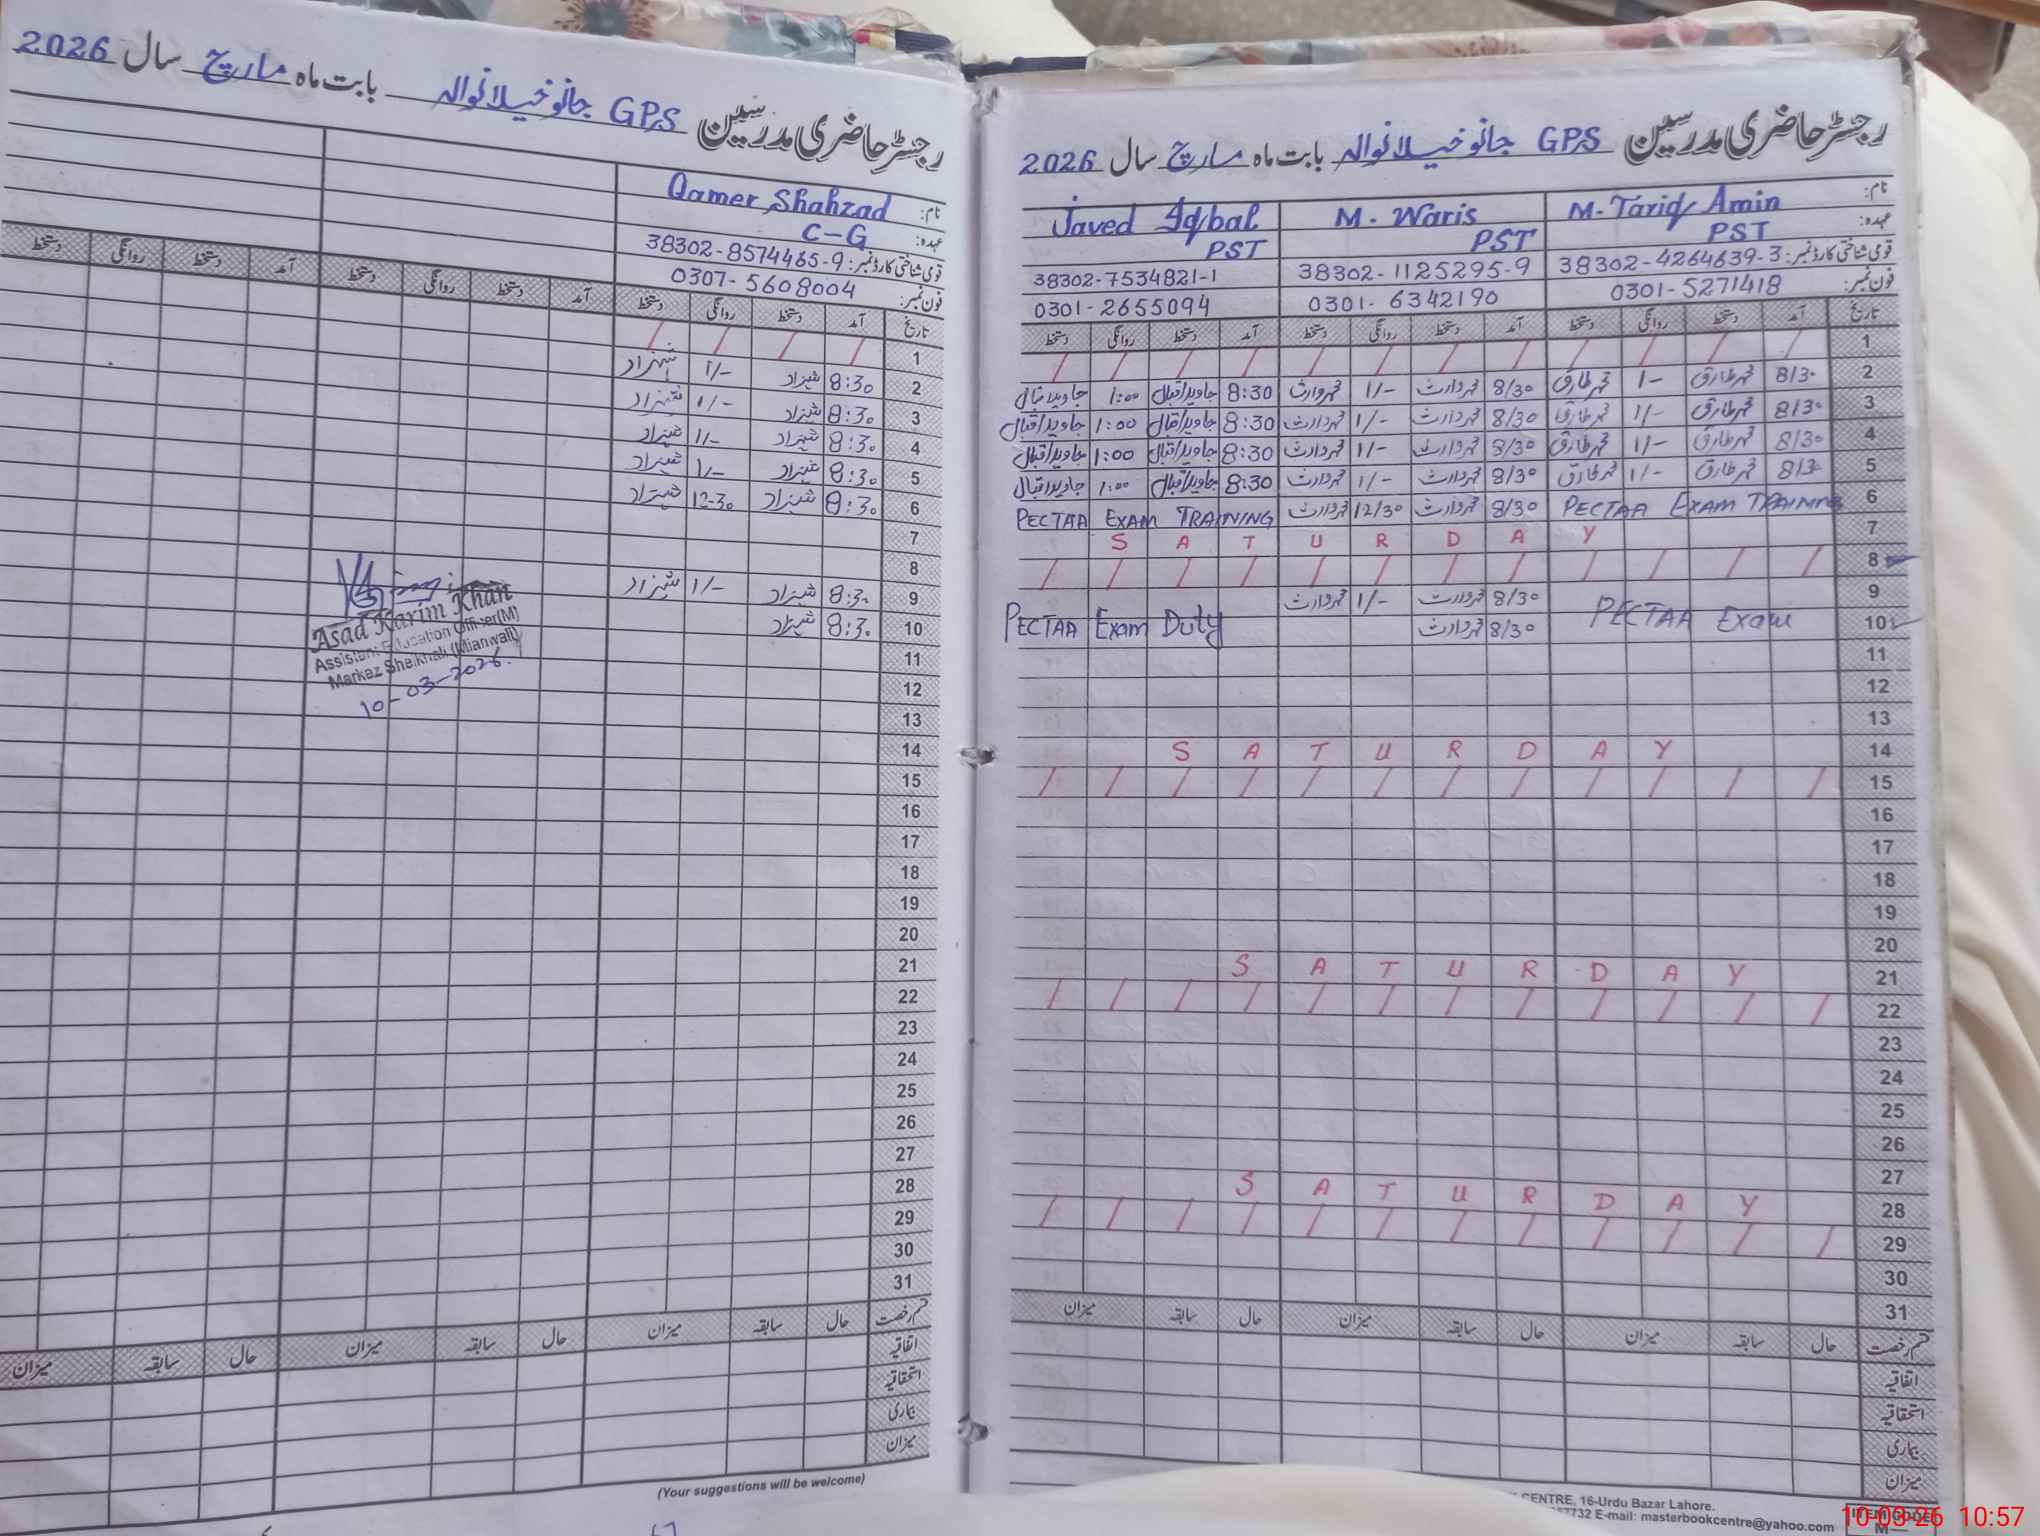 رجسٹر حاضری مدرسین GPS جانو خیلانوالہ بابت ماہ مارچ سال 2026
نام: M. Tariq Amin M. Waris Javed Iqbal
عہدہ: PST PST PST
قومی شناختی کارڈ نمبر: 38302-4264639-3 38302-1125295-9 38302-7534821-1
فون نمبر: 0301-5271418 0301-6342190 0301-2655094
تاریخ آمد دستخط روانگی دستخط آمد دستخط روانگی دستخط آمد دستخط روانگی دستخط
1 / / / / / / / / / / / /
2 8/30 محمد طارق 1/- محمد طارق 8/30 محمد وارث 1/- محمد وارث 8:30 جاوید اقبال 1:00 جاوید اقبال
3 8/30 محمد طارق 1/- محمد طارق 8/30 محمد وارث 1/- محمد وارث 8:30 جاوید اقبال 1:00 جاوید اقبال
4 8/30 محمد طارق 1/- محمد طارق 8/30 محمد وارث 1/- محمد وارث 8:30 جاوید اقبال 1:00 جاوید اقبال
5 8/30 محمد طارق 1/- محمد طارق 8/30 محمد وارث 1/- محمد وارث 8:30 جاوید اقبال 1:00 جاوید اقبال
6 PECTAA EXAM TRAINING 8/30 محمد وارث 12/30 محمد وارث PECTAA EXAM TRAINING
7 SATURDAY
8 / / / / / / / / / / / /
9 8/30 محمد وارث 1/- محمد وارث
10 PECTAA Exam 8/30 محمد وارث PECTAA Exam Duty
11
12
13
14 SATURDAY
15 / / / / / / / / / / / /
16
17
18
19
20
21 SATURDAY
22 / / / / / / / / / / / /
23
24
25
26
27
28 SATURDAY
29 / / / / / / / / / / / /
30
31
قسم رخصت حال سابقہ میزان حال سابقہ میزان حال سابقہ میزان
اتفاقیہ
استحقاقیہ
بیماری
میزان
CENTRE, 16-Urdu Bazar Lahore.
7732 E-mail: masterbookcentre@yahoo.com
ITEM CODE
10-03-26 10:57
رجسٹر حاضری مدرسین GPS جانو خیلانوالہ بابت ماہ مارچ سال 2026
نام: Qamer Shahzad
عہدہ: C-G
قومی شناختی کارڈ نمبر: 38302-8574465-9
فون نمبر: 0307-5608004
تاریخ آمد دستخط روانگی دستخط آمد دستخط روانگی دستخط آمد دستخط روانگی دستخط
1 / / / /
2 8:30 شہزاد 1/- شہزاد
3 8:30 شہزاد 1/- شہزاد
4 8:30 شہزاد 1/- شہزاد
5 8:30 شہزاد 1/- شہزاد
6 8:30 شہزاد 12-30 شہزاد
7
8
9 8:30 شہزاد 1/- شہزاد
10 8:30 شہزاد
Asad Karim Khan
Assistant Education Officer(M)
Markaz Sheikhali (Mianwali)
10-03-2026
11
12
13
14
15
16
17
18
19
20
21
22
23
24
25
26
27
28
29
30
31
قسم رخصت حال سابقہ میزان حال سابقہ میزان حال سابقہ میزان
اتفاقیہ
استحقاقیہ
بیماری
میزان
(Your suggestions will be welcome)